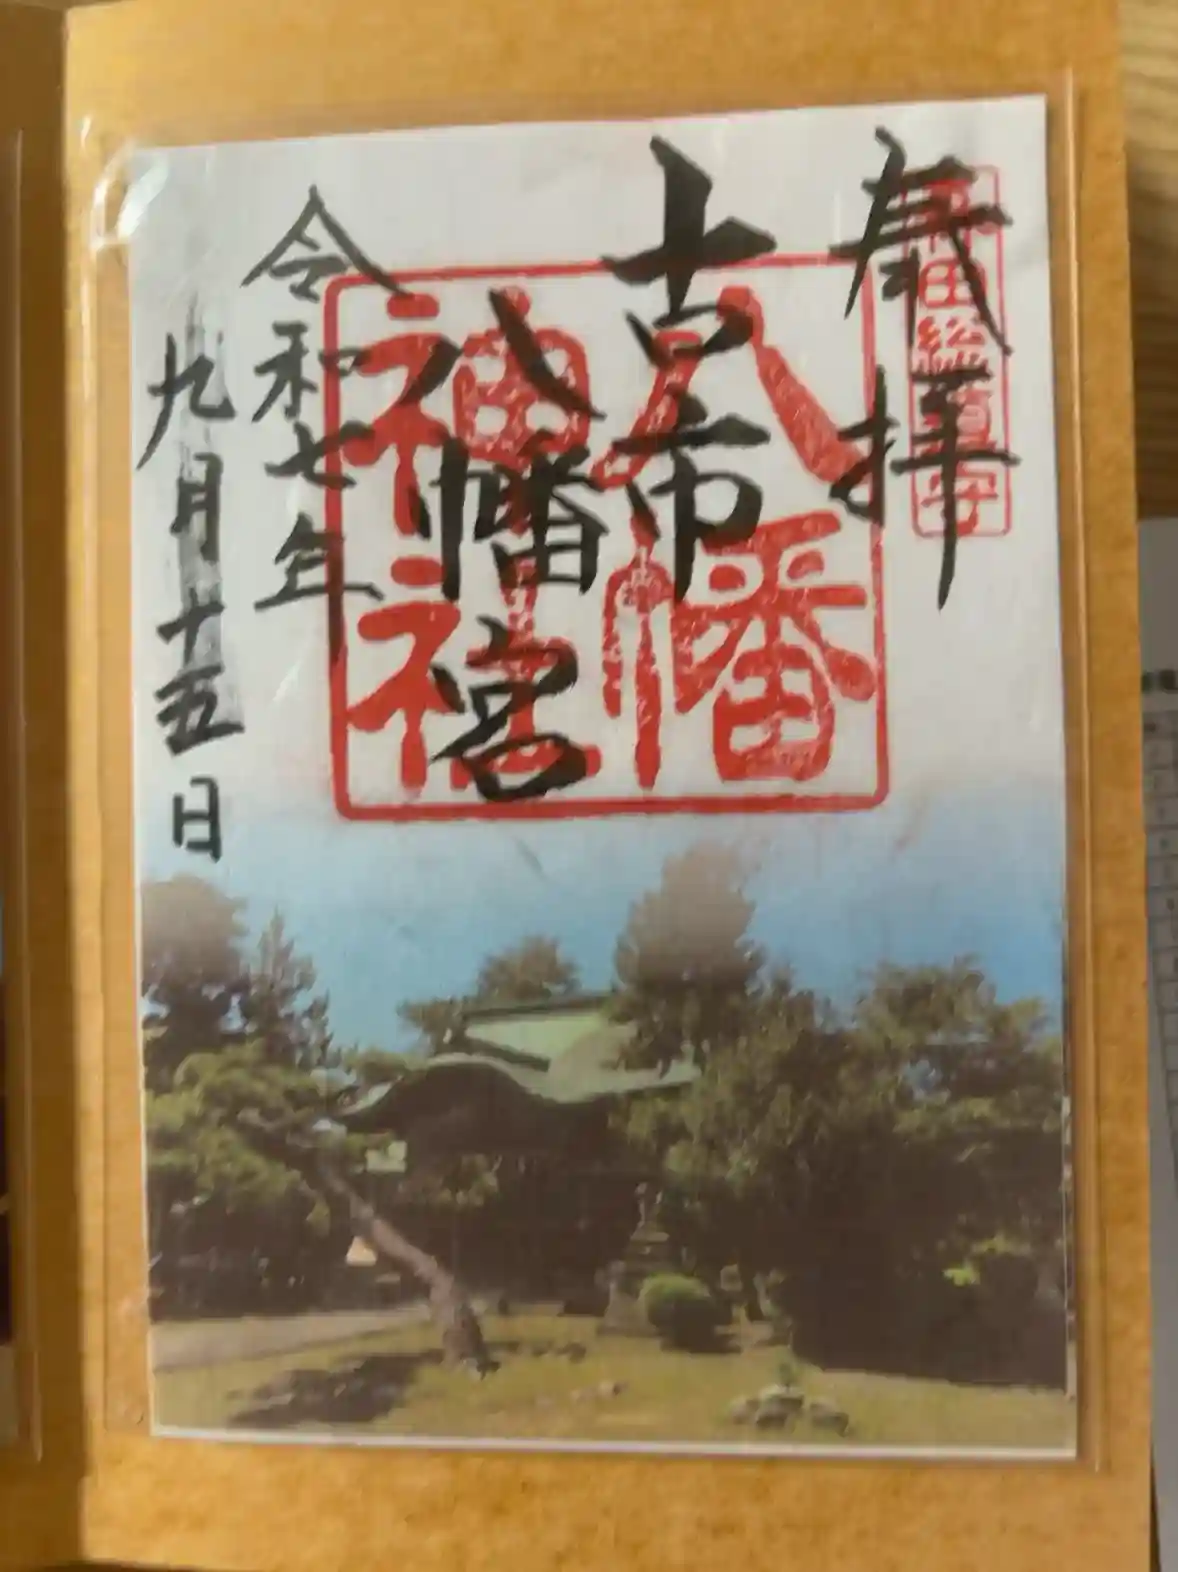 奉拝
古市
八幡宮
令和七年
九月十五日
八幡
神社
田総鎮守